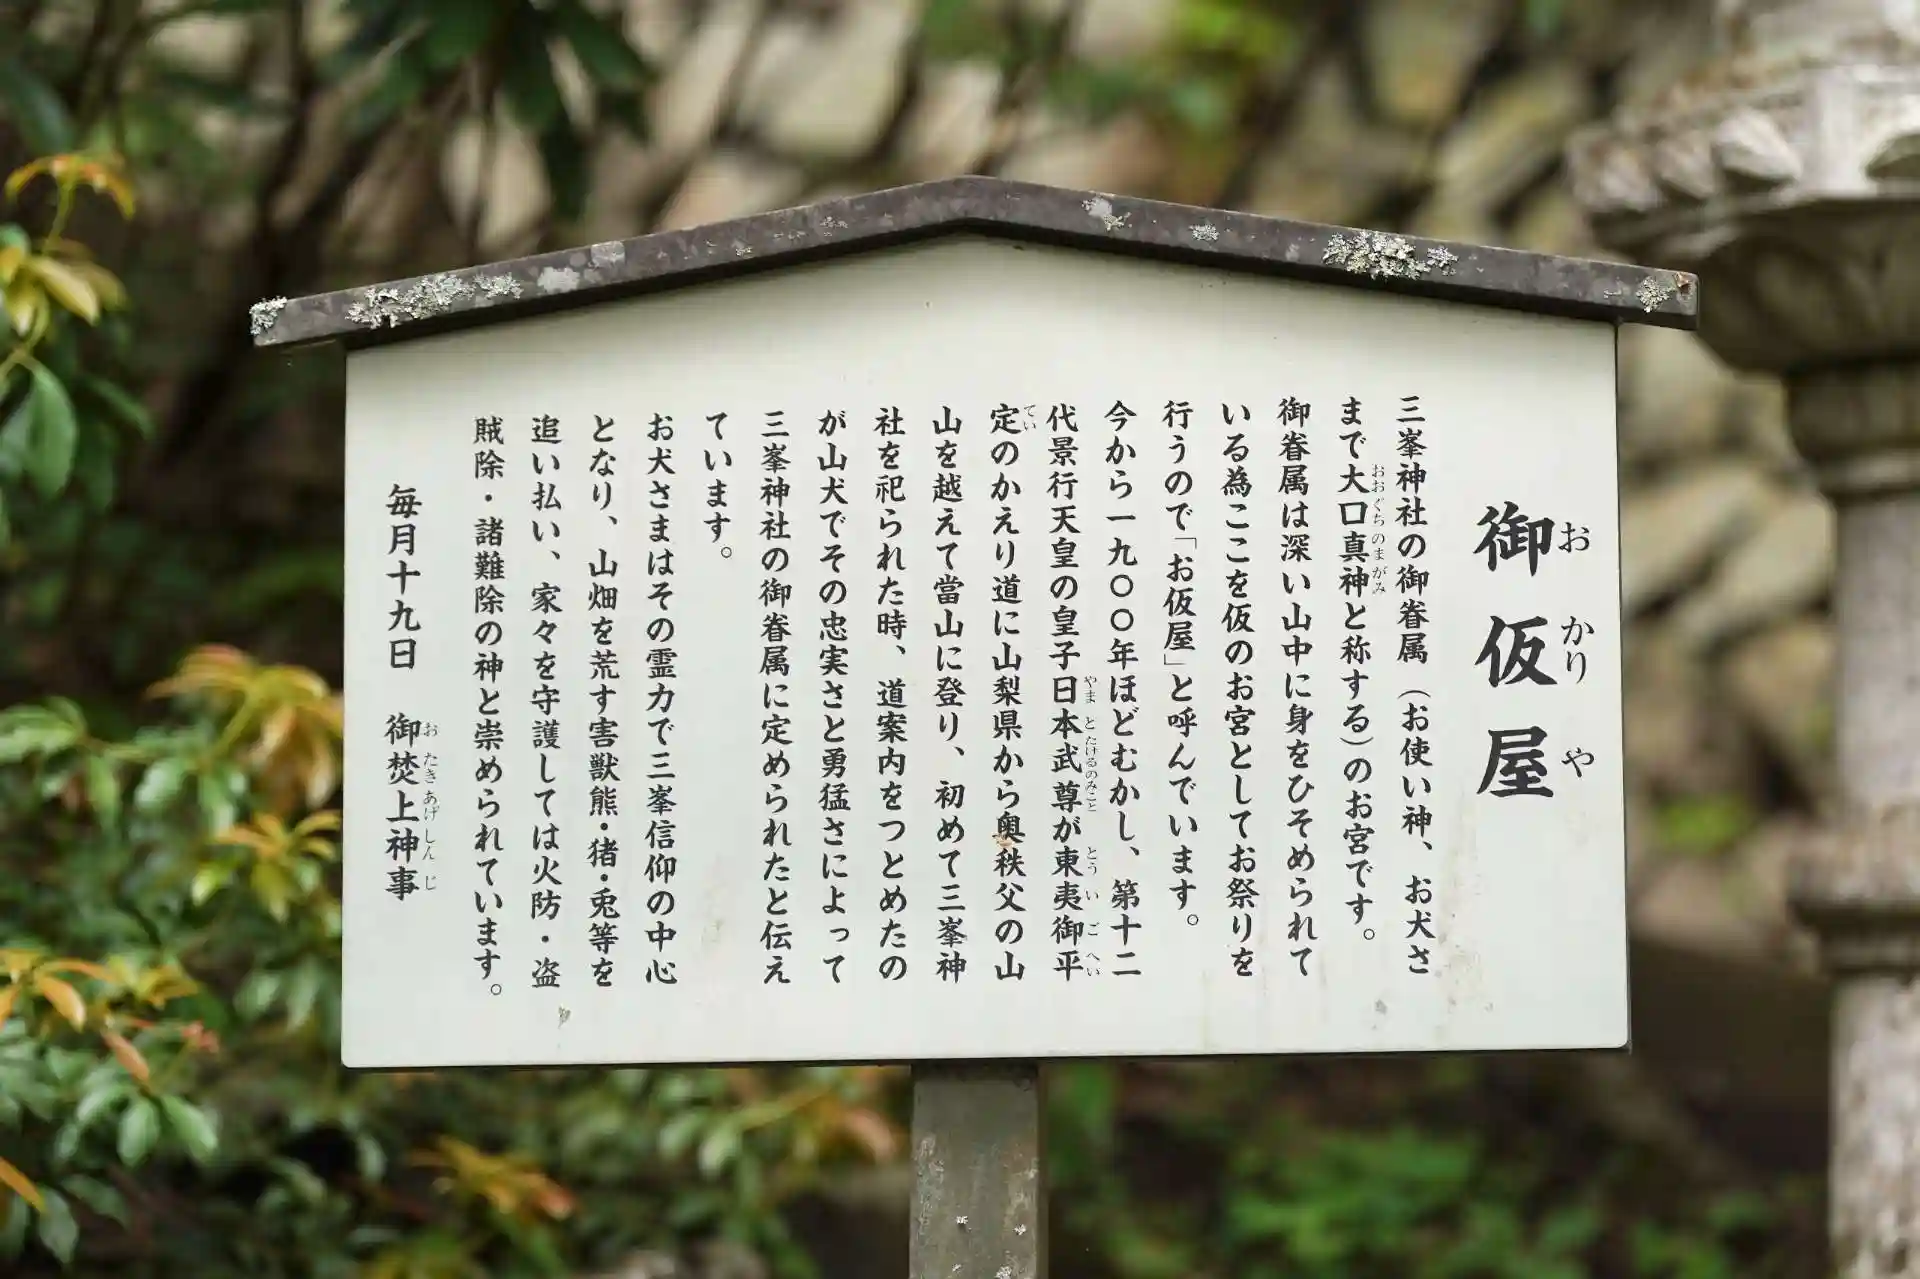 御仮屋
おかりや
三峯神社の御眷属（お使い神、お犬さ
まで大口真神と称する）のお宮です。
おおぐちのまがみ
御眷属は深い山中に身をひそめられて
いる為ここを仮のお宮としてお祭りを
行うので「お仮屋」と呼んでいます。
今から一九〇〇年ほどむかし、第十二
代景行天皇の皇子日本武尊が東夷御平
やまとたけるのみこと
とういごへい
定のかえり道に山梨県から奥秩父の山
てい
山を越えて當山に登り、初めて三峯神
社を祀られた時、道案内をつとめたの
が山犬でその忠実さと勇猛さによって
三峯神社の御眷属に定められたと伝え
ています。
お犬さまはその霊力で三峯信仰の中心
となり、山畑を荒す害獣熊・猪・兎等を
追い払い、家々を守護しては火防・盗
賊除・諸難除の神と崇められています。
毎月十九日　御焚上神事
おたきあげしんじ